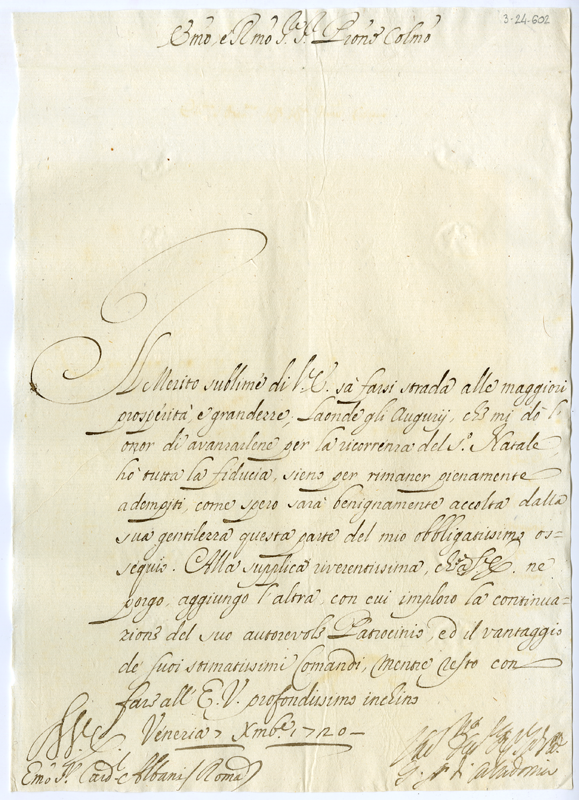 3-24-602
Emo, e Rmo Sre Sre Prone Colmo
Il Merito sublime di V. E. sà farsi strada alle maggiori
prosperità, e grandezze, Laonde gli Augurij, che mi dò l'
onor di avanzarlene per la ricorrenza del So. Natale,
hò tutta la fiducia, sieno per rimaner pienamente
adempiti, come spero sarà benignamente accolta dalla
sua gentilezza questa parte del mio obbligatissimo os=
sequio. Alla supplica riverentissima, che ne
porgo, aggiungo l'altra, con cui imploro la continua=
zione del suo autorevole Patrocinio, ed il vantaggio
de suoi stimatissimi Comandi, mentre resto con
fare all' E. V. profondissimo inchino
Venezia 7 Xmbre 1720
Emo Sr. Cardle Albani / Roma